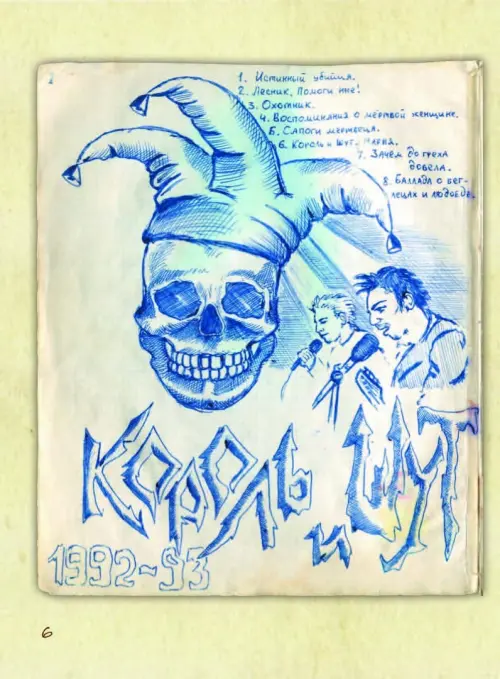 1. Истинный убийца.
2. Лесник, Помоги мне!
3. Охотник.
4. Воспоминания о мёртвой женщине.
5. Сапоги мертвеца.
6. Король и Шут
7. Зачем до гроба
добела.
8. Баллада о бег-
лецах и людоеде.
Король и Шут
1992-93
6